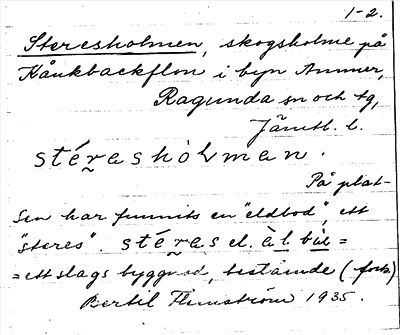 1-2.
Steresholmen, skogsholme på
Håukbackflon i byn Ammer,
Ragunda sn och tg,
Jämtl. l.
stérasholman.
På plat-
sen har funnits en "eldbod", ett
"steres". stéras el. àl. bùɐ =
= ett slags byggnad, bestående (forts)
Bertil Flemström 1935.